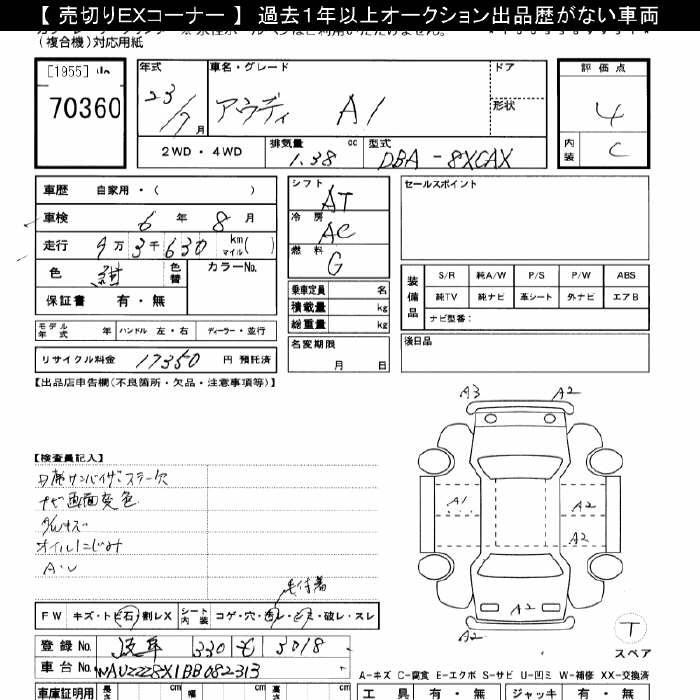 【 売切りEXコーナー 】 過去1年以上オークション出品歴がない車両
(複合機)対応用紙
[1955]
70360
年式 23/7月
車名・グレード アウディ A1
ドア
形状
評価点 4
内装 C
2WD・4WD
排気量 1.38 cc
型式 DBA-8XCAX
車歴 自家用・( )
車検 6年 8月
走行 9万3千630 km マイル( )
色 紺 色替 カラーNo.
保証書 有・無
モデル年式 年 ハンドル 左・右 ディーラー・並行
リサイクル料金 17350 円 預託済
シフト AT
冷房 AC
燃料 G
乗車定員 名
積載量 kg
総重量 kg
名変期限 月 日
セールスポイント
装備品
S/R 純A/W P/S P/W ABS
純TV 純ナビ 革シート 外ナビ エアB
ナビ型番:
後日品
【出品店申告欄(不良箇所・欠品・注意事項等)】
【検査員記入】
ナビ画面変色
オイルにじみ
A3 A2
A1 A2
A2
A2
A2
FW キズ・トビ石・割レX
シート内装 コゲ・穴・スレ・シミ・破レ・スレ
登録No. 岐阜 330 5018
車台No. WAUZZZ8X1BB082313
T
スペア
A-キズ C-腐食 E-エクボ S-サビ U-凹ミ W-補修 XX-交換済
車庫証明用 長さ cm 幅 cm 高 cm
工具 有・無 ジャッキ 有・無